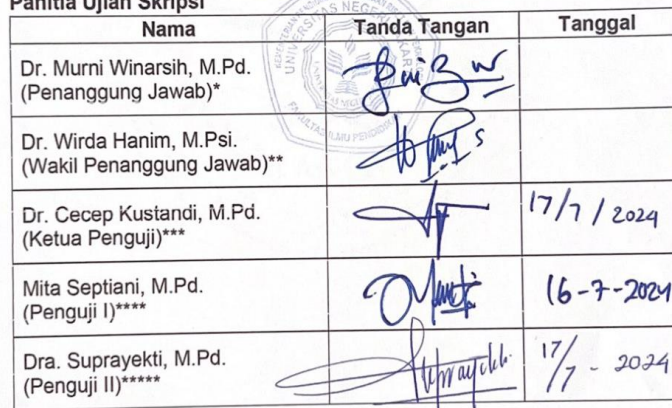 Panitia Ujian Skripsi
Nama Tanda Tangan Tanggal
Dr. Murni Winarsih, M.Pd.
(Penanggung Jawab)*
Dr. Wirda Hanim, M.Psi.
(Wakil Penanggung Jawab)**
Dr. Cecep Kustandi, M.Pd.
(Ketua Penguji)***
17/7/2024
Mita Septiani, M.Pd.
(Penguji I)****
16-7-2024
Dra. Suprayekti, M.Pd.
(Penguji II)*****
17/7 - 2024
UNIVERSITAS NEGERI
FAKULTAS ILMU PENDIDIKAN